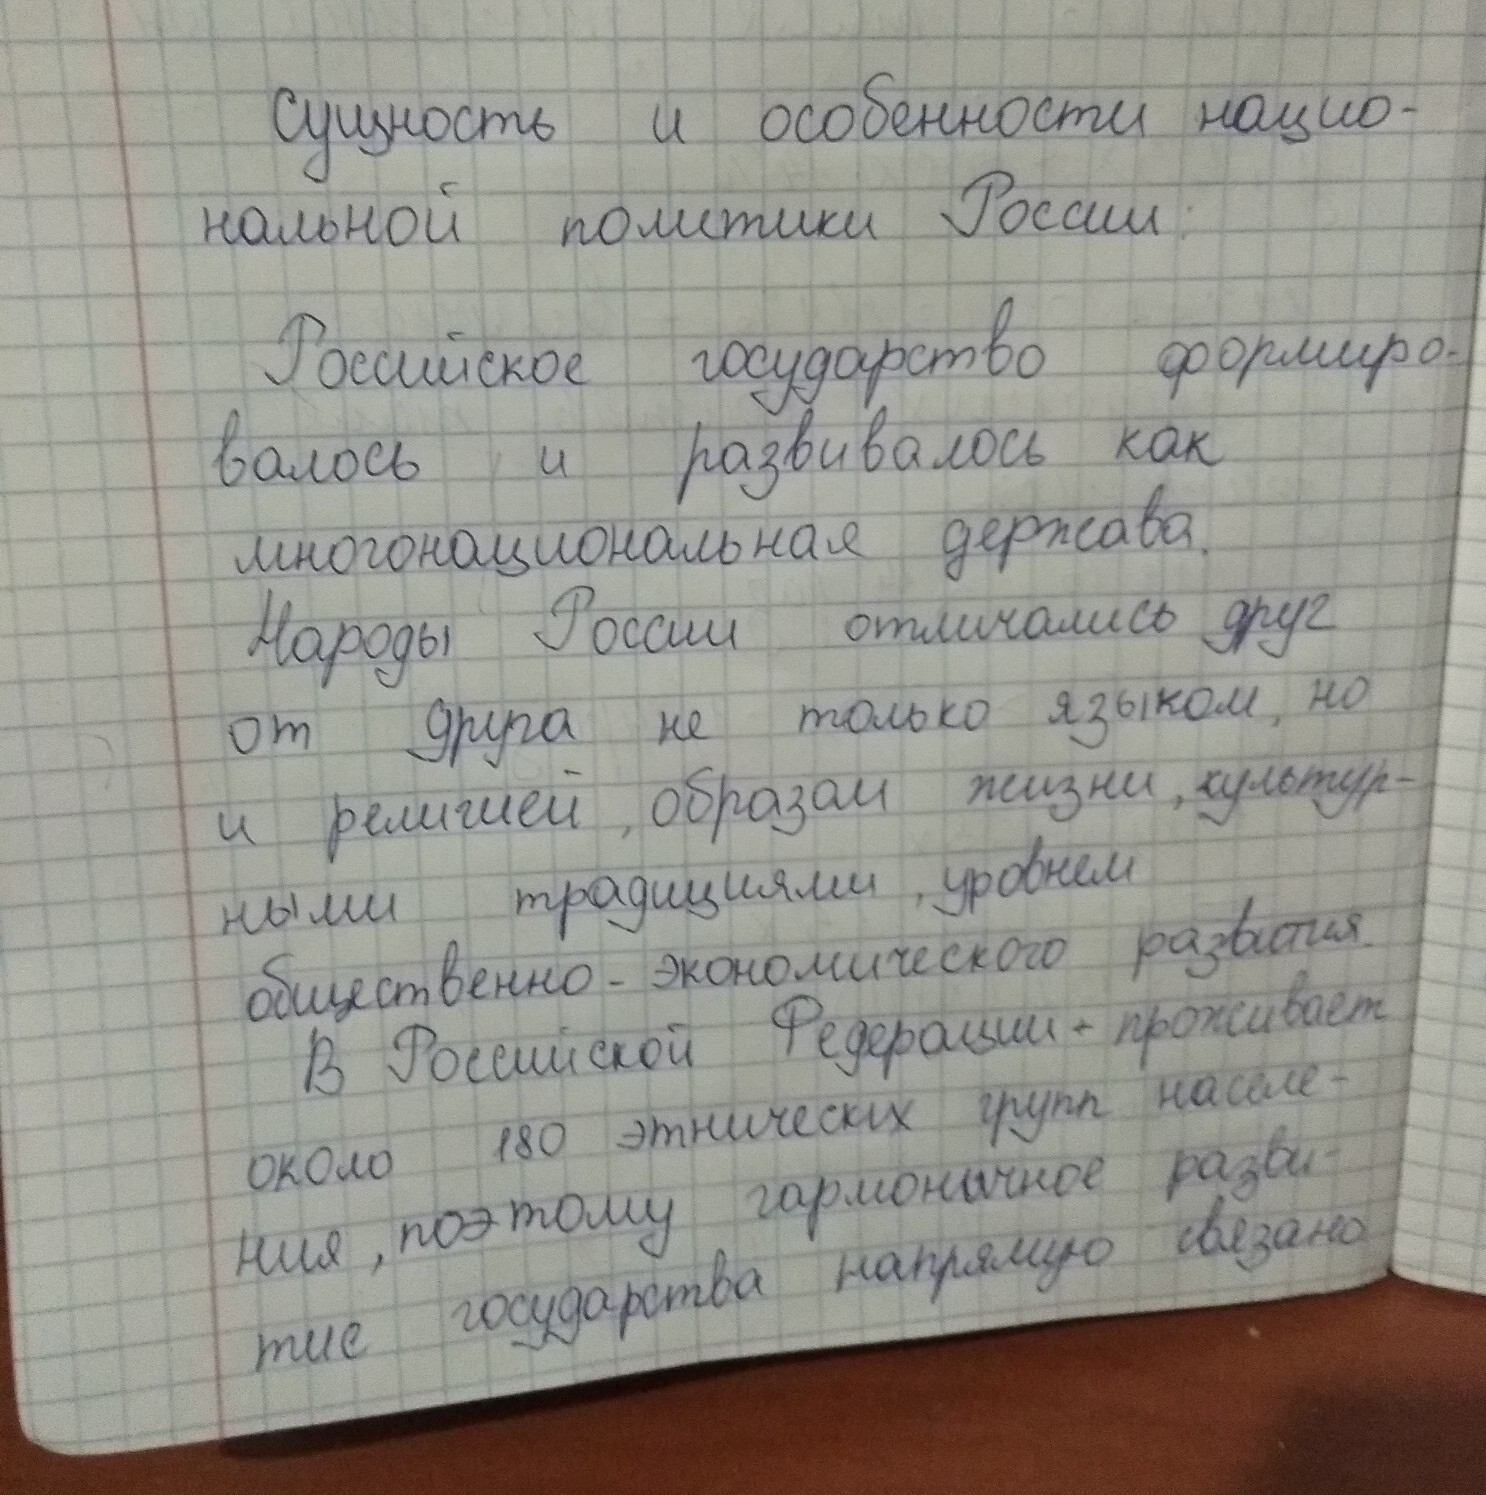 Сущность и особенности нацио-
нальной политики России:
Российское государство формиро-
валось и развивалось как
многонациональная держава.
Народы России отличались друг
от друга не только языком, но
и религией, образом жизни, культур-
ными традициями, уровнем
общественно-экономического развития.
В Российской Федерации - проживает
около 180 этнических групп населе-
ния, поэтому гармоничное разви-
тие государства напрямую связано